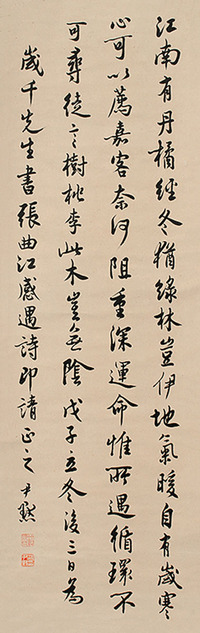 江南有丹橘經冬猶綠林豈伊地氣暖自有歲寒
心可以薦嘉客奈何阻重深運命惟所遇循環不
可尋徒言樹桃李此木豈無陰戊子立冬後三日爲
歲千先生書張曲江感遇詩即請正之尹默